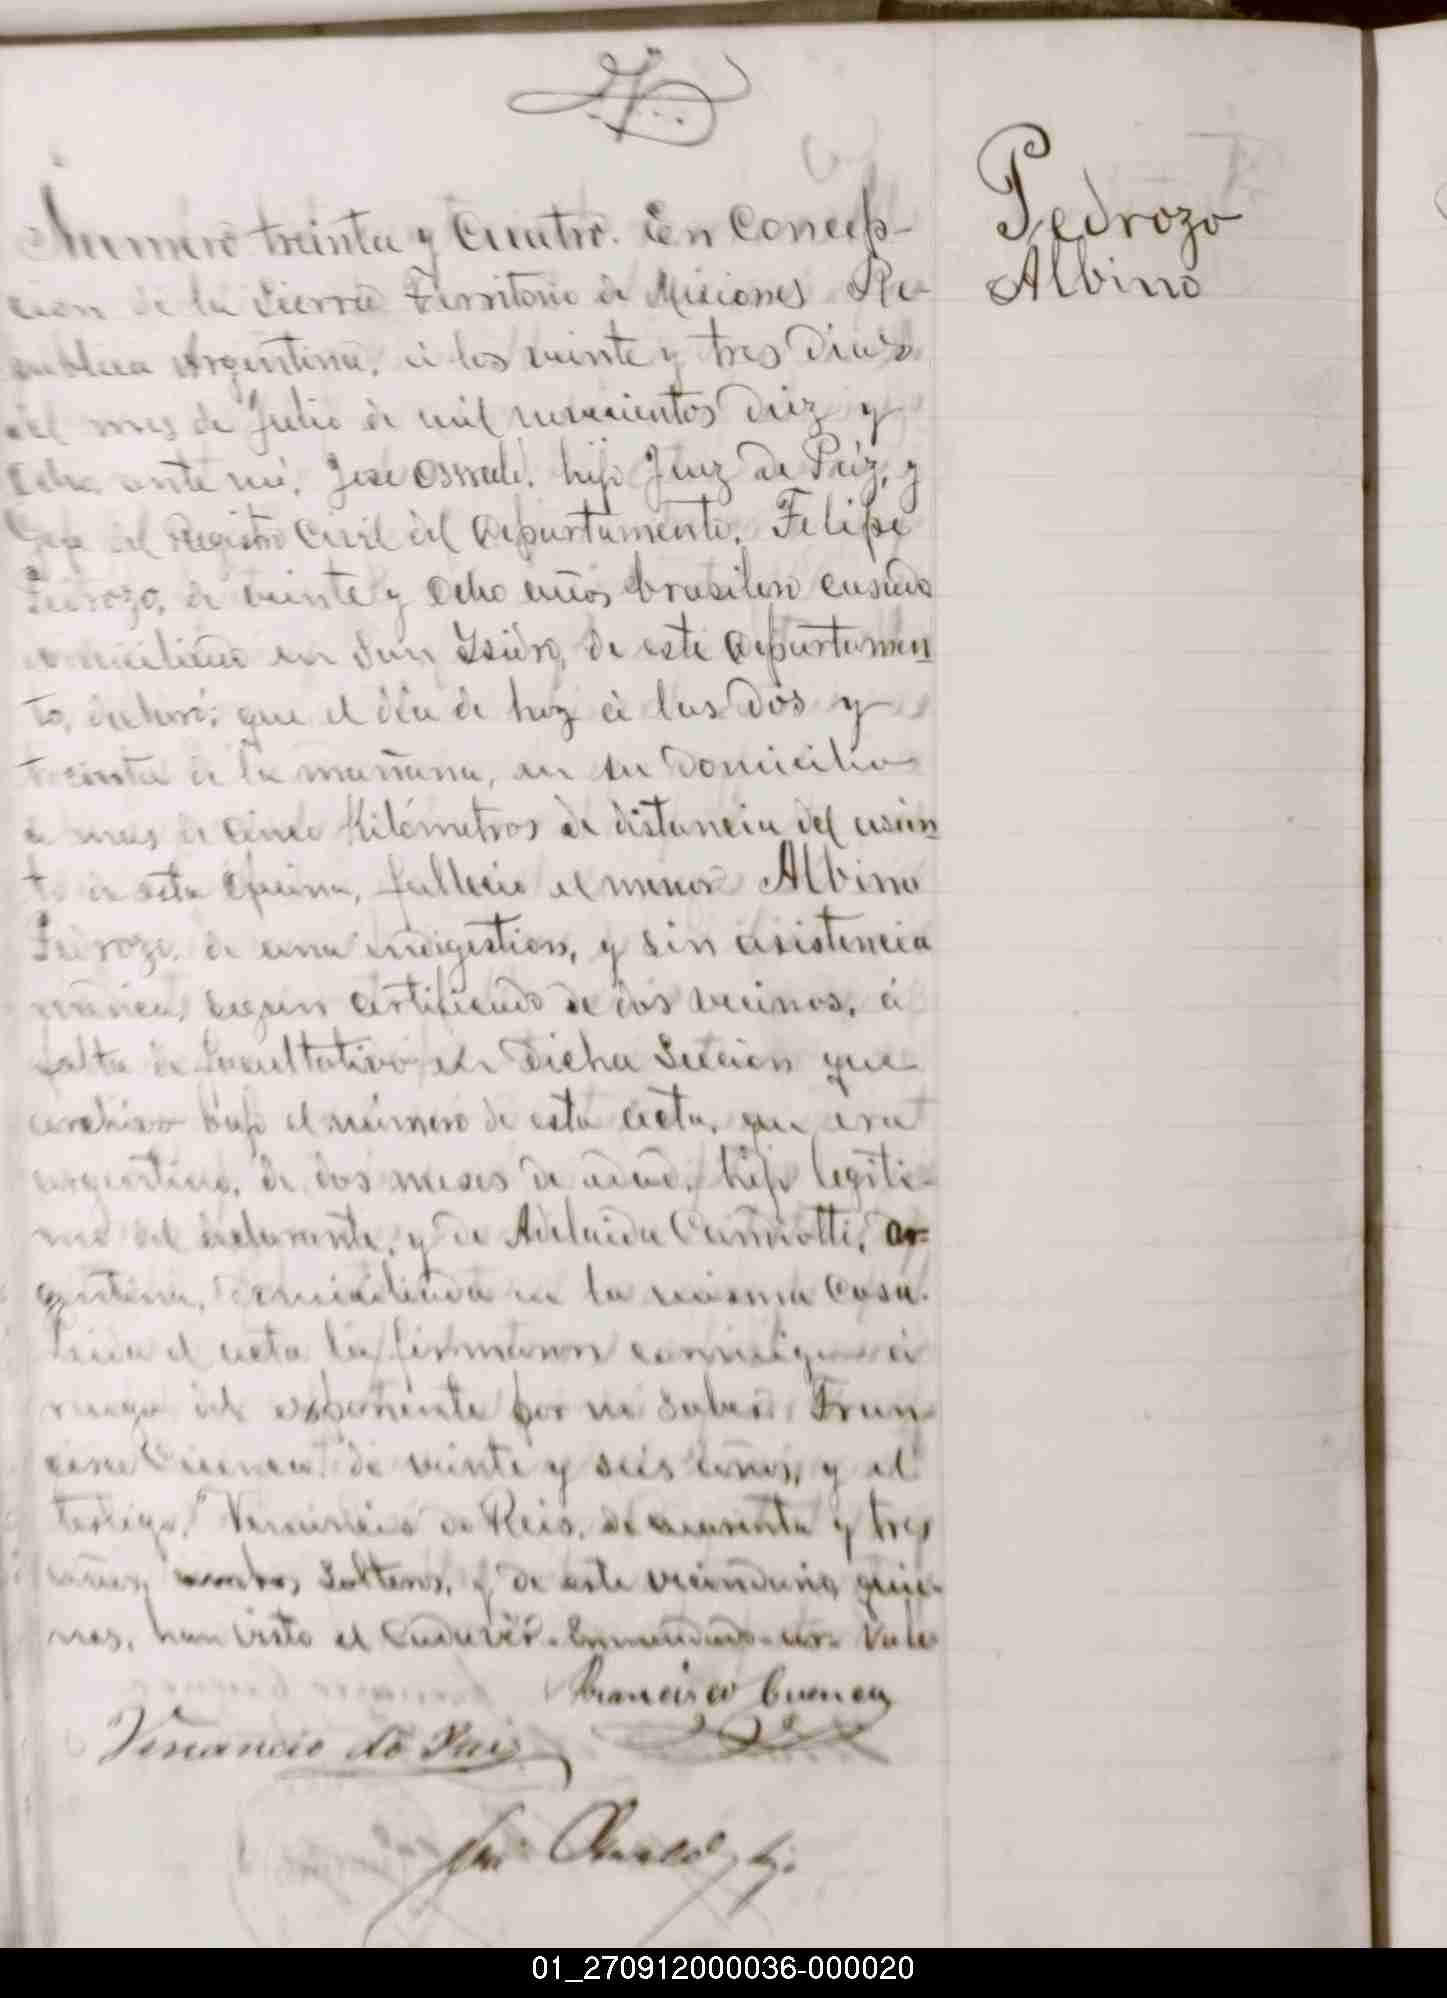 Pedrozo
Albino
Numero treinta y cuatro. En Concep-
cion de la Sierra Territorio de Misiones Re-
publica Argentina, á los veinte y tres dias
del mes de Julio de mil novecientos diez y
ocho ante mi, José Oswald. hijo Juez de Paz, y
Gefe del Registro Civil del Departamento, Felipe
Pedrozo, de veinte y ocho años brasilero casado
domiciliado en San Isidro, de este Departamen
to, declaró; que el dia de hoy á las dos y
treinta de la mañana, en su domicilio
á mas de cinco Kilómetros de distancia del asien
to de esta Oficina, falleció el menor Albino
Pedrozo, de una indigestion, y sin asistencia
médica, segun certificado de dos vecinos, á
falta de facultativo en dicha Seccion que
archivo bajo el número de esta acta, que era
argentino, de dos meses de edad, hijo legiti-
mo del declarante, y de Adelaida Candiotti, ar=
gentina, domiciliada en la misma casa.
Leida el acta la firmaron conmigo á
ruego del esponente por no saber, Fran
cisco Cuenca de veinte y seis años, y el
testigo, Venancio de Reis, de cuarenta y tres
años, ambos solteros, y de este vecindario, quie-
nes, han visto el cadaver. Enmendado-ar- Vale
Francisco Cuenca
Venancio do Reis
José Oswald, h.
01_270912000036-000020